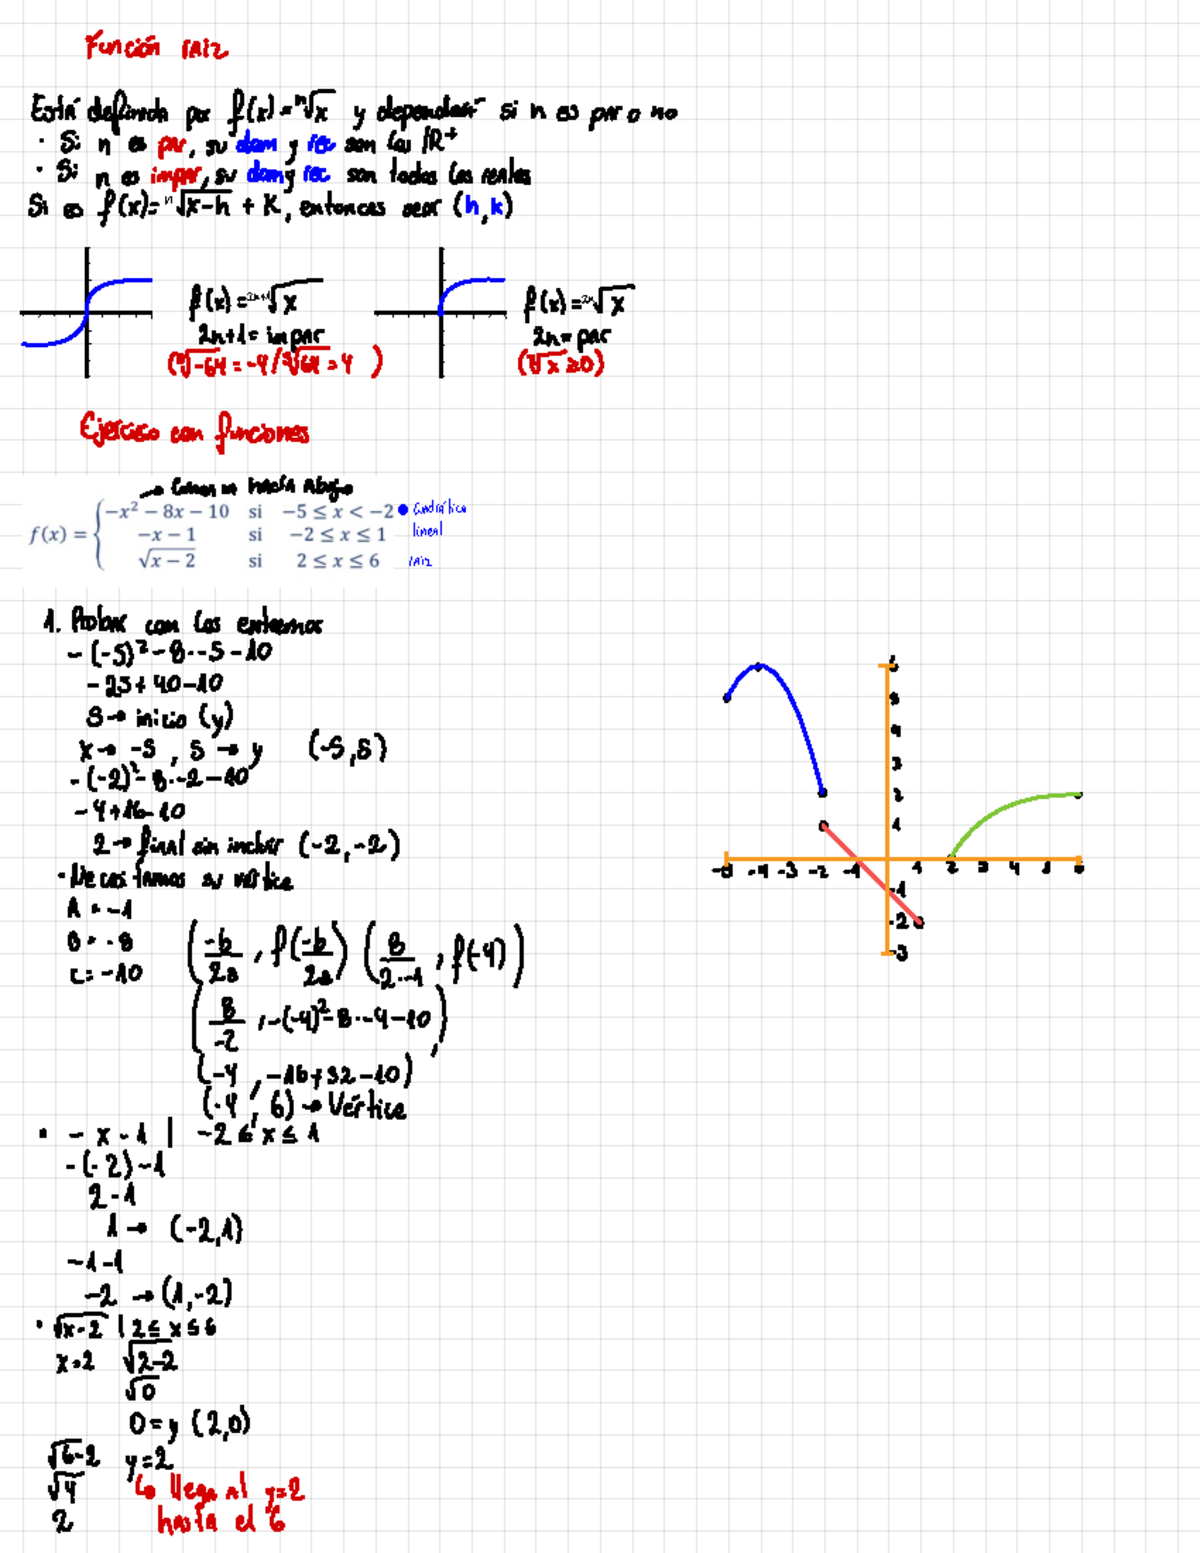 Función raiz
Está definida por f(x) = ⁿ√x y dependerá si n es par o no
· Si n es par, su dom y rec son los IR⁺
· Si n es impar, su dom y rec son todos los reales
Si es f(x) = ⁿ√x-h + K, entonces será (h,k)
f(x) = ²ⁿ⁺¹√x
2n+1 = impar
(³√-64 = -4 / ³√64 = 4 )
f(x) = ²ⁿ√x
2n = par
(√x ≥0)
Ejercicio con funciones
→ hacia abajo
f(x) = { −x² − 8x − 10 si −5 ≤ x < −2 ● Cuadrática
−x − 1 si −2 ≤ x ≤ 1 lineal
√x − 2 si 2 ≤ x ≤ 6 raiz
1. Probar con los extremos
- (-5)² - 8·-5 - 10
- 25 + 40 - 10
5 → inicio (y)
x → -5 , 5 → y (-5,5)
- (-2)² - 8·-2 - 10
- 4 + 16 - 10
2 → final sin incluir (-2,-2)
· Necesitamos su vértice
A = -1
B = -8
C = -10
(-b/2a , f(-b/2a)) (8/2·-1 , f(-4))
(8/-2 , -(-4)² - 8·-4 - 10)
(-4 , -16 + 32 - 10)
(-4 , 6) → Vértice
· - x - 1 | -2 ≤ x ≤ 1
- (-2) - 1
2 - 1
1 → (-2,1)
-1 - 1
-2 → (1,-2)
· √x-2 | 2 ≤ x ≤ 6
x=2 √2-2
√0
0 = y (2,0)
√6-2 y=2
√4 ↳ llega al y=2
2 hasta el 6
6
5
4
3
2
1
-5 -4 -3 -2 -1 1 2 3 4 5 6
-1
-2
-3